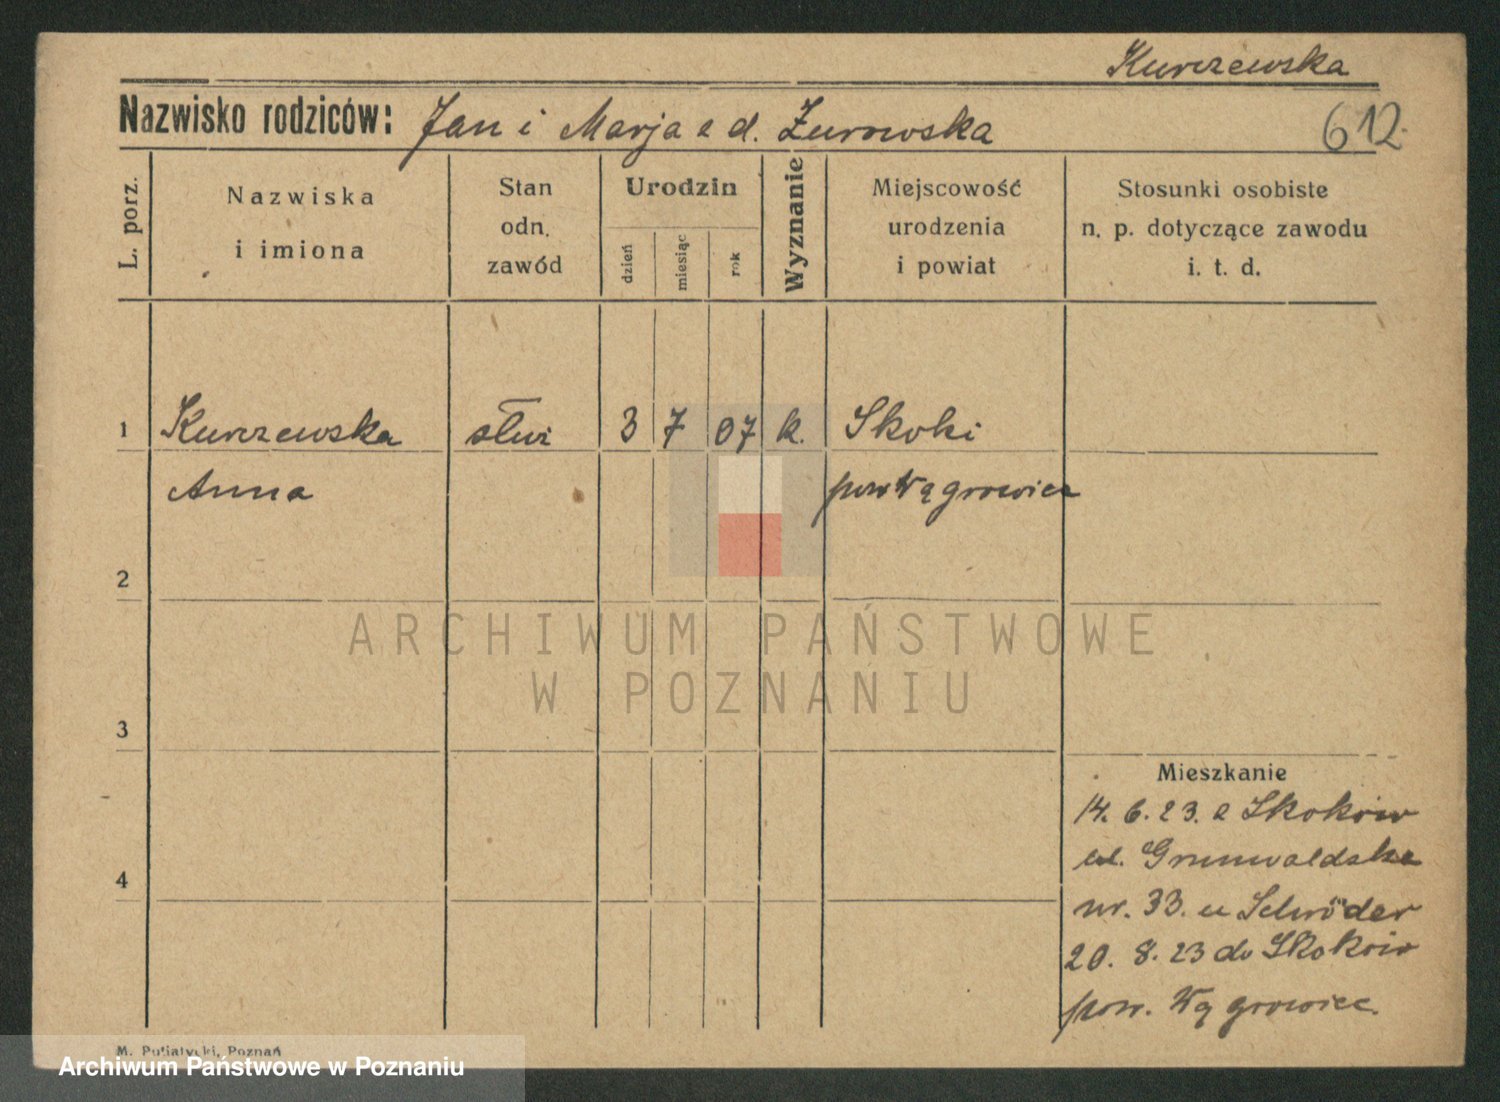 Kurczewska
Nazwisko rodziców: Jan i Marja z d. Żurowska
612.
L. porz.
Nazwiska
i imiona
Stan
odn.
zawód
Urodzin
dzień
miesiąc
rok
Wyznanie
Miejscowość
urodzenia
i powiat
Stosunki osobiste
n. p. dotyczące zawodu
i. t. d.
1 Kurczewska służ 3 7 07 k. Skoki
Anna pow Wągrowiec
2
3
4
Mieszkanie
14. 6. 23. z Skoków
ul. Grunwaldska
nr. 33. u Schröder
20. 8. 23 do Skoków
pow. Wągrowiec.
M. Putiatycki, Poznań
ARCHIWUM PAŃSTWOWE
W POZNANIU
Archiwum Państwowe w Poznaniu